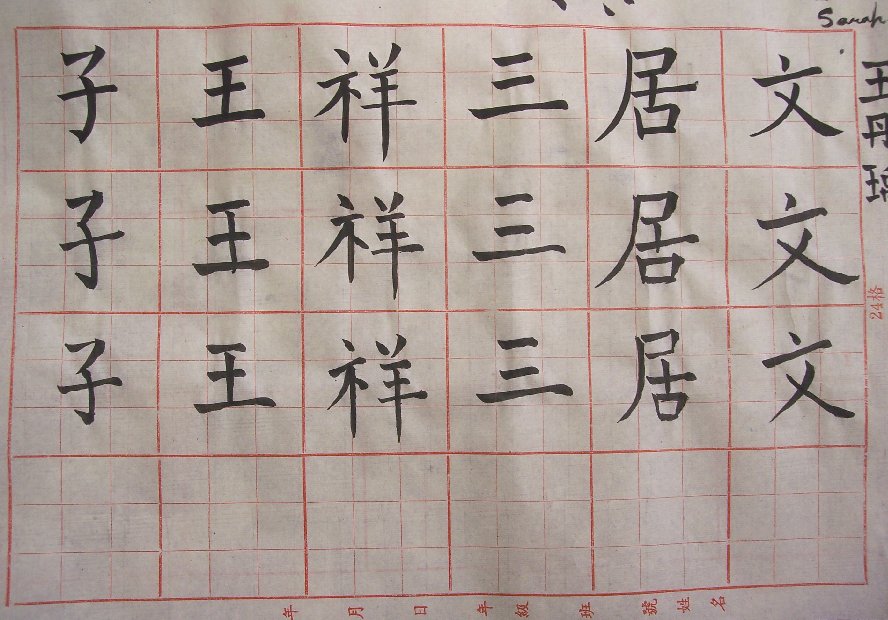 Sarah
王丹
子 王 祥 三 居 文
子 王 祥 三 居 文
子 王 祥 三 居 文
24格
年 月 日 年級 班 號 姓名